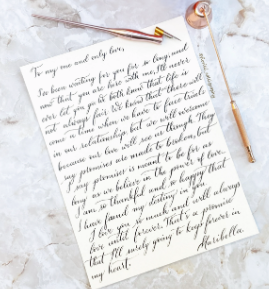 To my one and only love,
I've been waiting for you for so long, and
now that you are here with me, I'll never
ever let you go. We both know that life is
not always fair. We know that there will
come a time when we have to face trials
in our relationship, but we will overcome
because our love will see us through. They
say promises are made to be broken, but
my promises is meant to be for as
long as we believe in the power of love.
I am so thankful and so happy that
I have found my destiny in you.
I love you so much and will always
love until forever. That's a promise
that I'll surely going to keep forever in
my heart.
Maribella